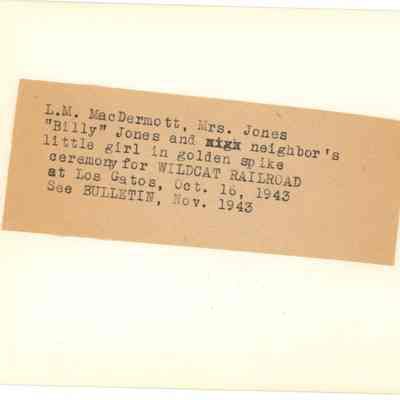 L.M. MacDermott, Mrs. Jones
"Billy" Jones and neighbor's
little girl in golden spike
ceremony for WILDCAT RAILROAD
at Los Gatos, Oct. 16, 1943
See BULLETIN, Nov. 1943